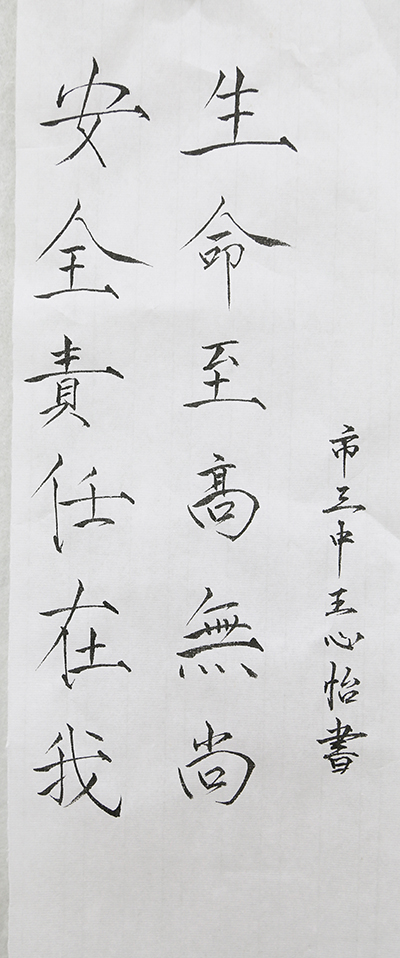 安全責任在我
生命至高無尚
市三中王心怡書